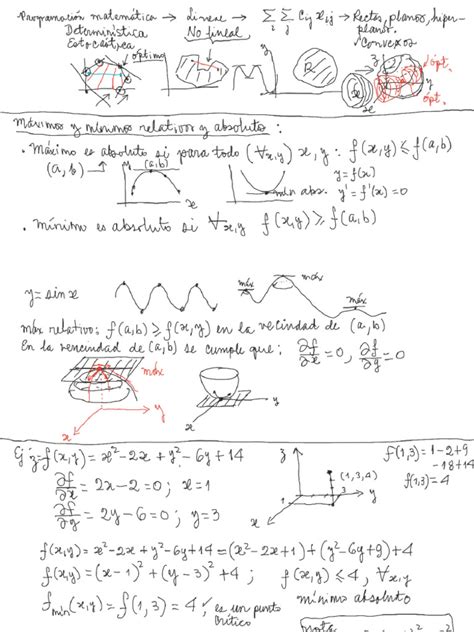 Programación matemática → lineal → Σ Σ Cij xij → Rectas, planos, hiper-
i j
planos.
Determinística
No lineal
Convexos
Estocástica
óptimo
y
R
z
y
ópt.
x
x
ópt.
Máximos y mínimos relativos y absolutos:
• Máximo es absoluto si para todo (∀x,y) x, y : f(x,y) ≤ f(a,b)
(a,b) →
(a,b)
M
x
mín abs.
y = f(x)
y' = f'(x) = 0
• Mínimo es absoluto si ∀x,y f(x,y) ≥ f(a,b)
y = sin x
máx
máx
máx
máx relativo: f(a,b) ≥ f(x,y) en la vecindad de (a,b)
En la vencindad de (a,b) se cumple que: ∂f/∂x = 0, ∂f/∂y = 0
máx
y
x
Ej: z = f(x,y) = x² - 2x + y² - 6y + 14
∂f/∂x = 2x - 2 = 0 ; x = 1
∂f/∂y = 2y - 6 = 0 ; y = 3
z
(1,3,4)
3
1
y
x
f(1,3) = 1-2+9
-18+14
f(1,3) = 4
f(x,y) = x² - 2x + y² - 6y + 14 = (x² - 2x + 1) + (y² - 6y + 9) + 4
f(x,y) = (x - 1)² + (y - 3)² + 4 ; f(x,y) ≤ 4, ∀x,y
mínimo absoluto
fmín(x,y) = f(1,3) = 4 ; es un punto
crítico